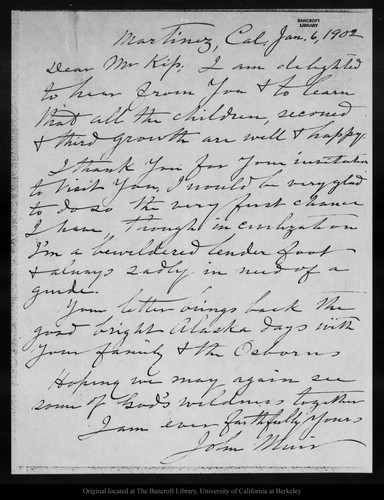 BANCROFT
LIBRARY
Martinez, Cal, Jan. 6, 1902
Dear Mr Kip, I am delighted
to hear from You & to learn
that all the children, second
& third growth are well & happy.
I thank You for Your invitation
to visit You, I would be very glad
to do so the very first chance
I have, though in civilization
I'm a bewildered tender foot
& always sadly in need of a
guide.
Your letter brings back the
good bright Alaska days with
Your family & the Osborns
Hoping we may again see
some of God's wildness together
I am ever faithfully Yours
John Muir
Original located at The Bancroft Library, University of California at Berkeley